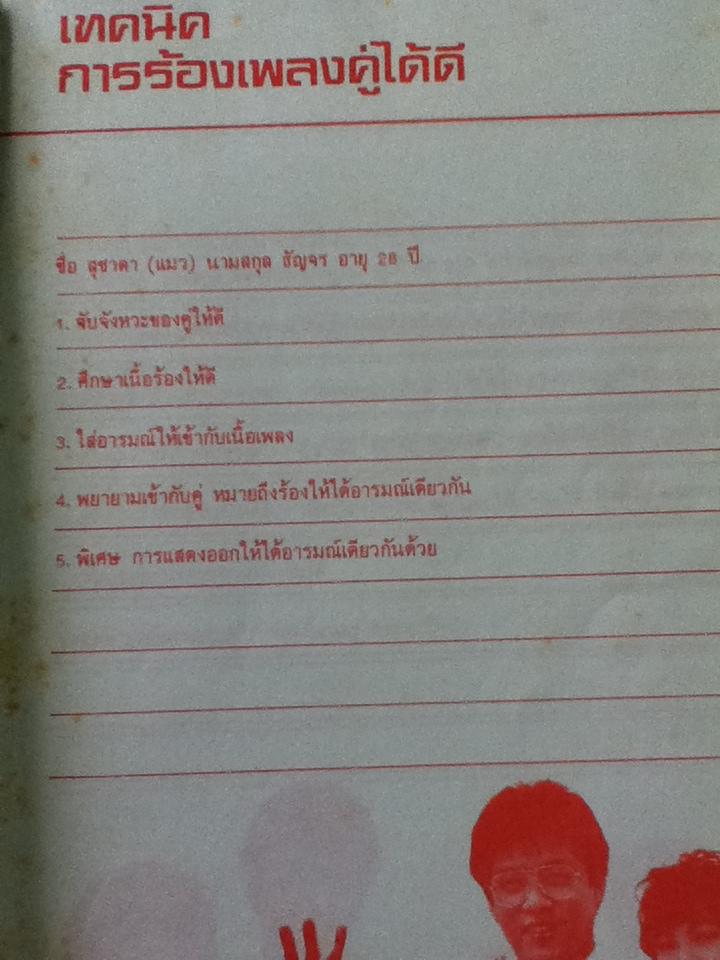 เทคนิค
การร้องเพลงคู่ได้ดี
ชื่อ สุชาดา (แมว) นามสกุล ธัญจร อายุ 28 ปี
1. จับจังหวะของคู่ให้ดี
2. ศึกษาเนื้อร้องให้ดี
3. ใส่อารมณ์ให้เข้ากับเนื้อเพลง
4. พยายามเข้ากับคู่ หมายถึงร้องให้ได้อารมณ์เดียวกัน
5. พิเศษ การแสดงออกให้ได้อารมณ์เดียวกันด้วย